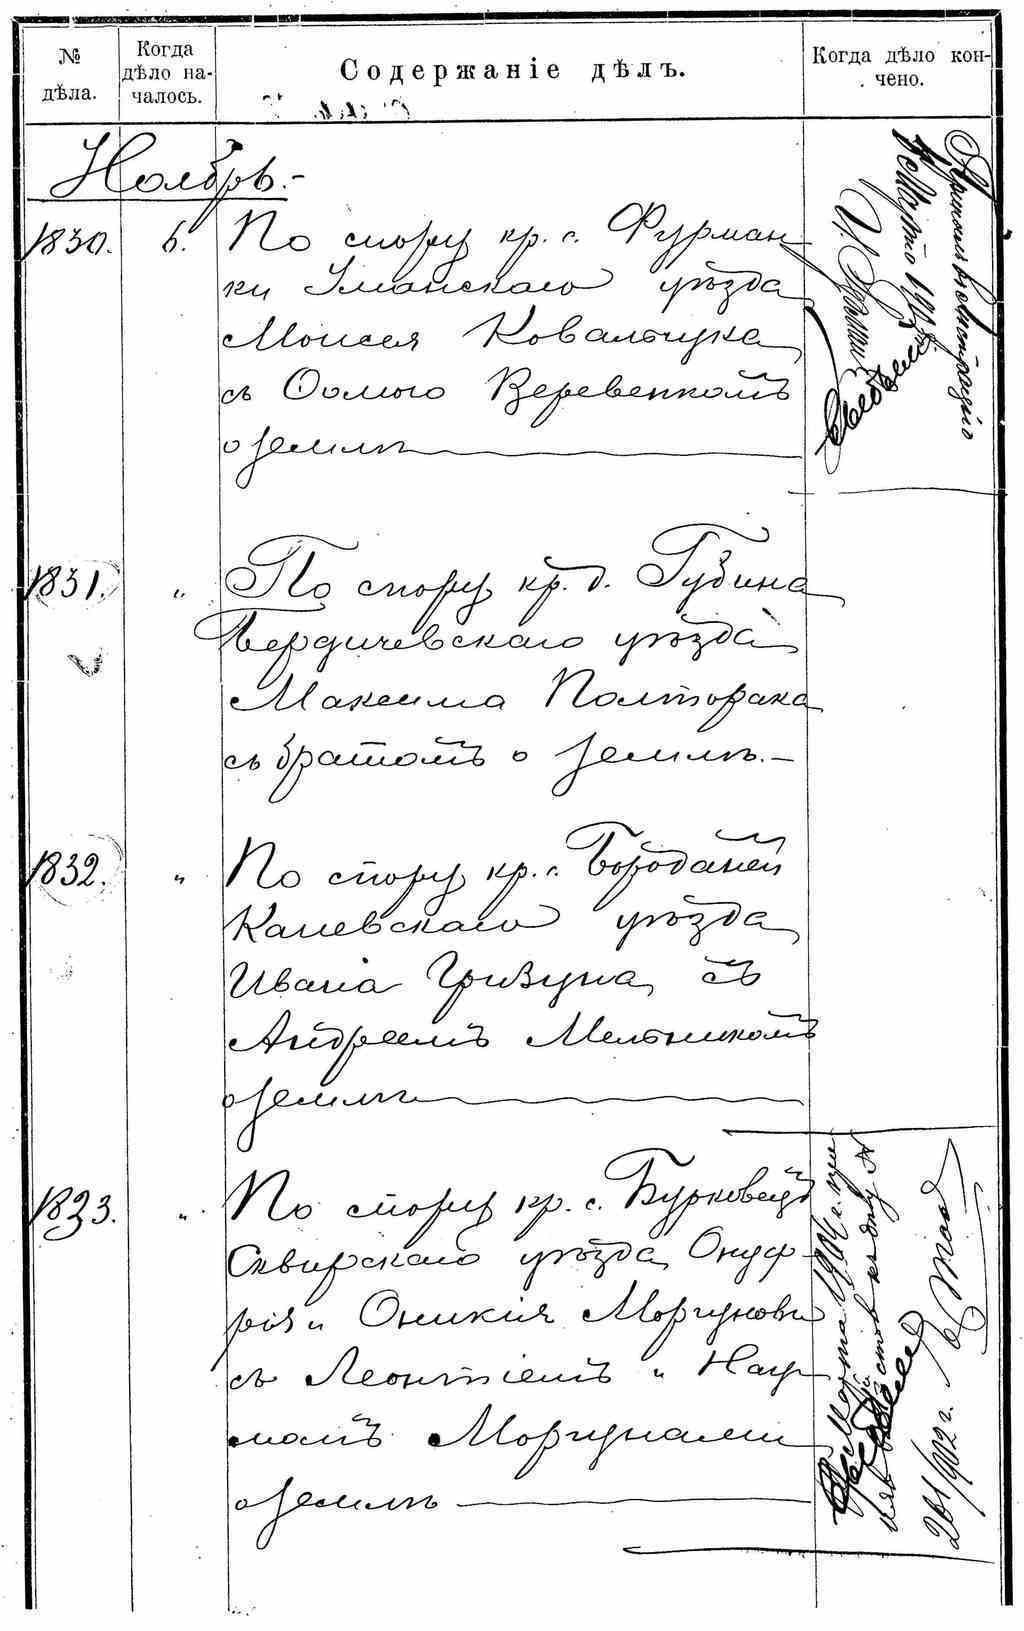 № дѣла.
Когда
дѣло на-
чалось.
Содержаніе дѣлъ.
Когда дѣло кон-
чено.
Ноябрь.-
1830. 6. По спору кр. с. Фурман
ки Уманскаго уѣзда
Моисея Ковальчука
съ Ѳомою Веревенкомъ
о землѣ
1831. " По спору кр. д. Губина
Бердичевскаго уѣзда
Максима Полторака
съ братомъ о землѣ.-
1832. " По спору кр. с. Бородяней
Каневскаго уѣзда
Ивана Гризуна съ
Андреемъ Мельникомъ
о землѣ
1833. " По спору кр. с. Бурковецъ
Сквирскаго уѣзда Онуф-
рія и Оникія Моргуновъ
съ Леонтіемъ и Нау-
момъ Моргунами
о землѣ
Марта 1904 г.
къ дѣлу №
201/902 г.